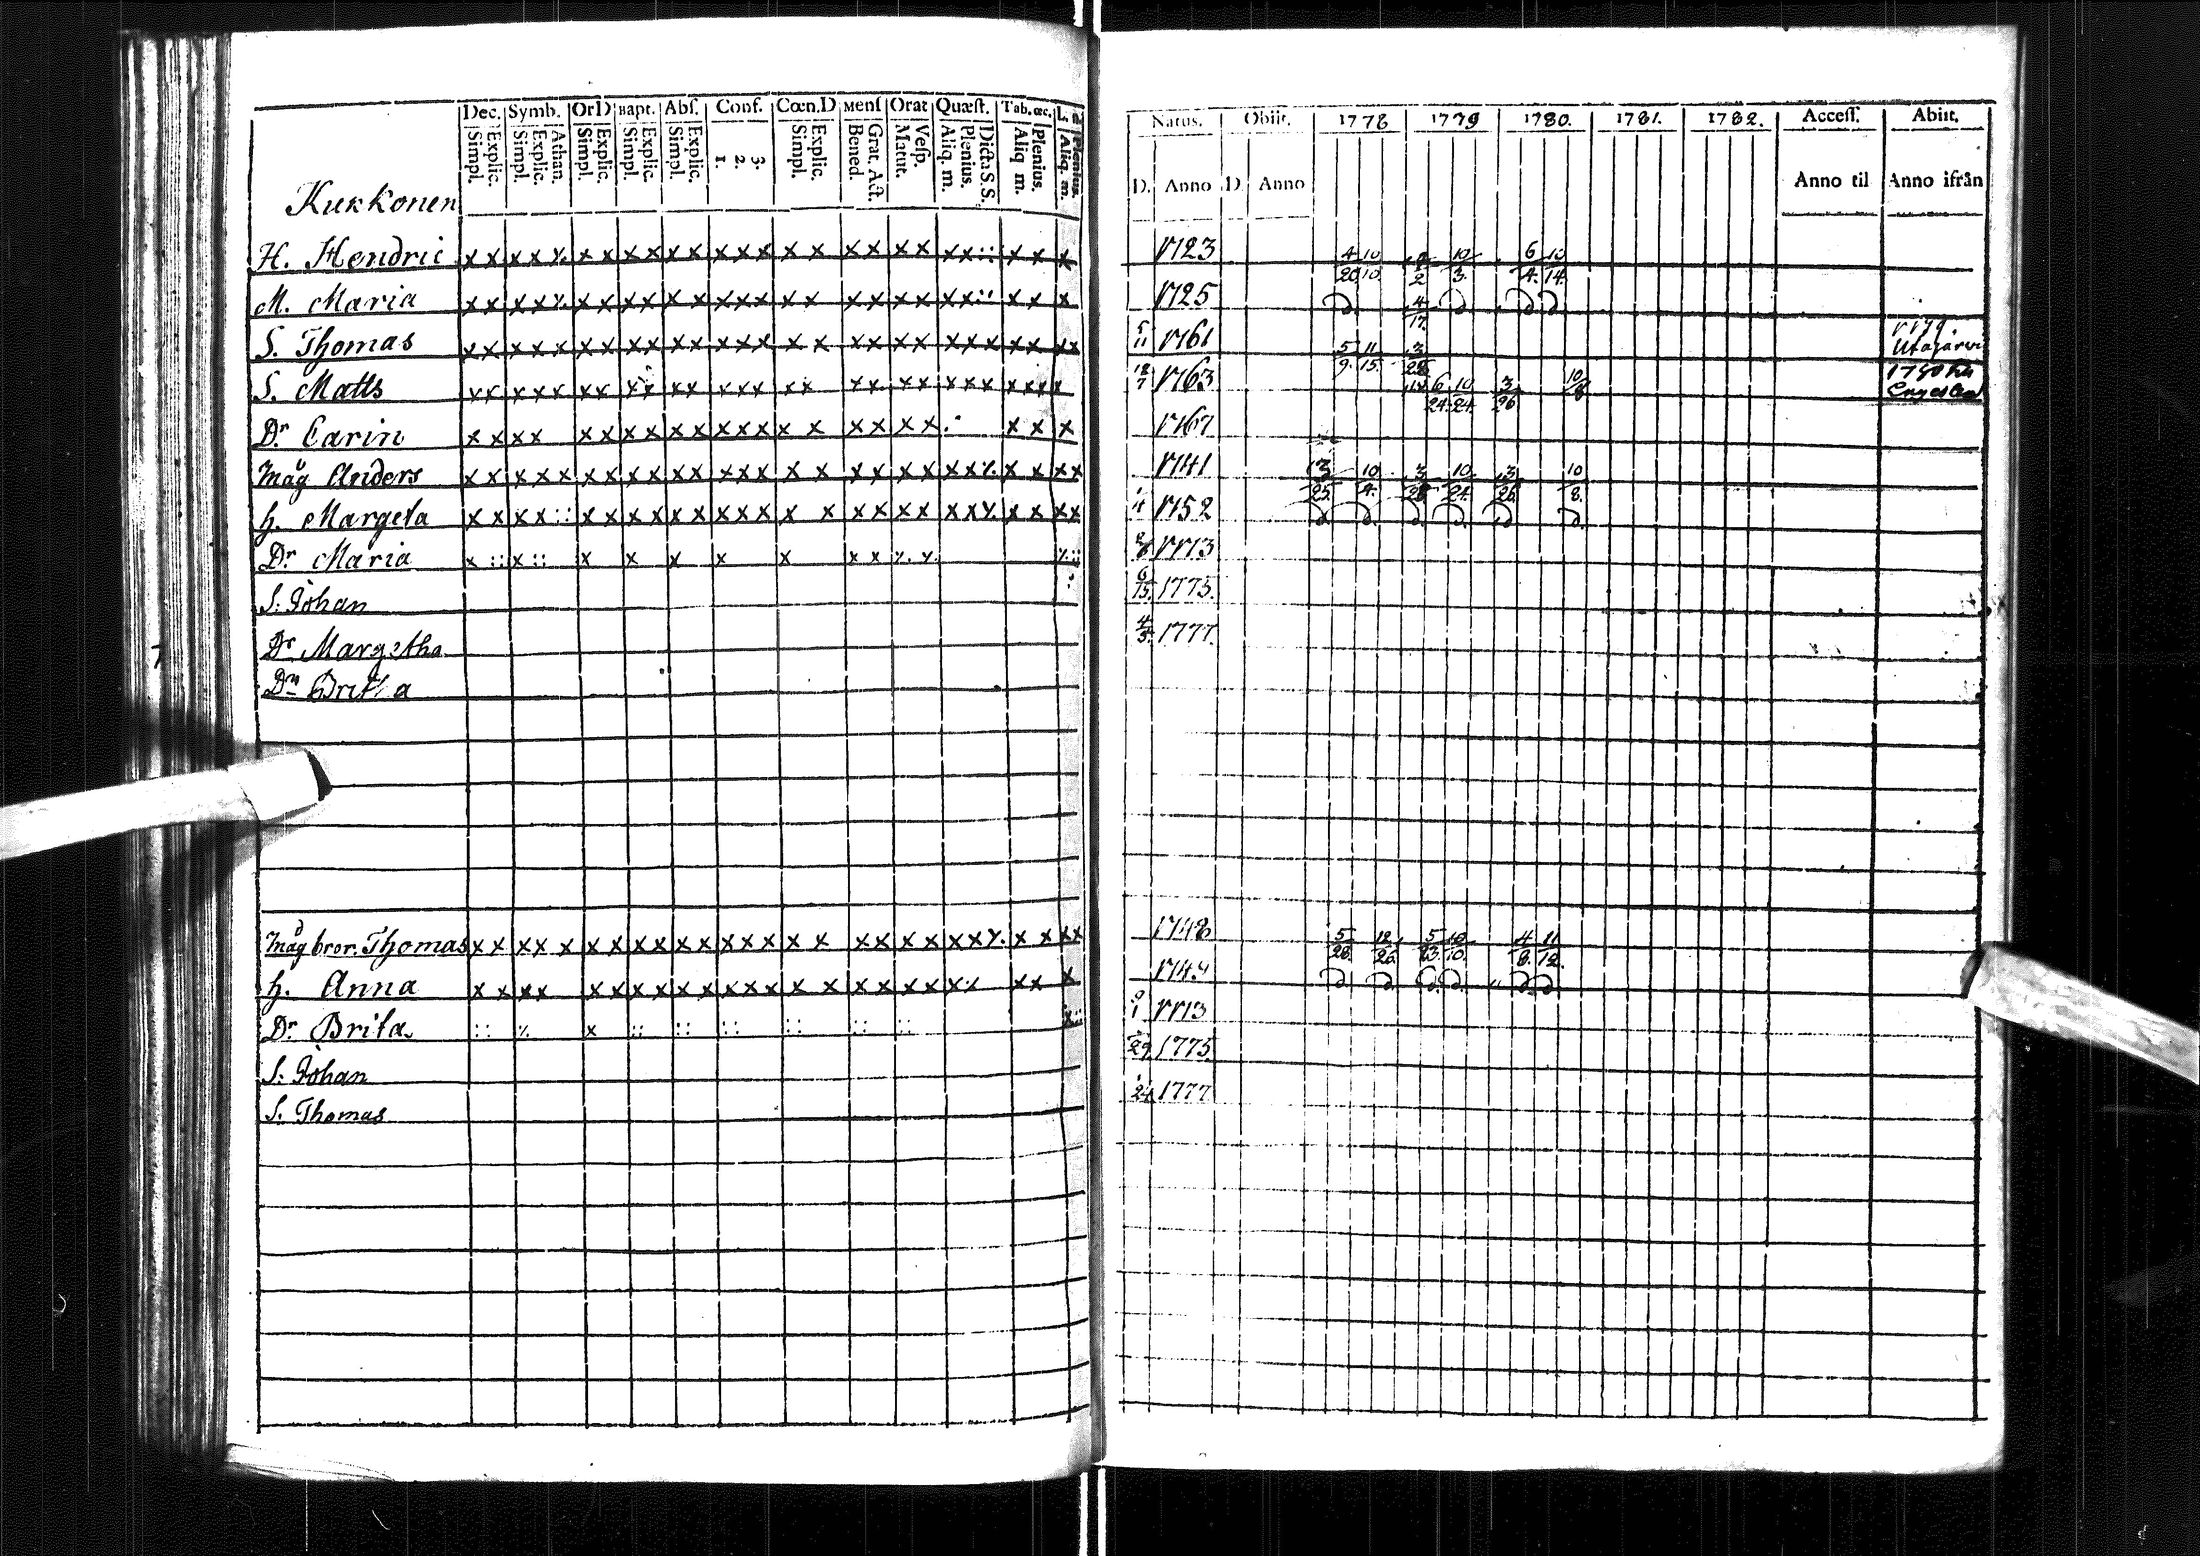 Dec. Symb. OrD Bapt. Abſ. Conf. Cœn.D Menſ Orat Quæſt. Tab. œc. L.
Simpl. Explic. Simpl. Explic. Athan. Simpl. Explic. Simpl. Explic. Simpl. Explic. 1. 2. 3. Simpl. Explic. Bened. Grat. Act. Matut. Veſp. Aliq. m. Plenius. Dicta S.S. Aliq m. Plenius. Aliq. m. Plenius.
Natus. Obiit. 1778 1779 1780. 1781. 1782. Acceſſ. Abiit.
D. Anno D. Anno Anno til Anno ifrån
Kukkonen
H. Hendric x x x x ٪ x x x x x x x x x x x x x x x x x :: x x x 1723 4/20 10/10 10/3 6/4 10/14
M. Maria x x x x ٪ x x x x x x x x x x x x x x x x x :: x x x 1725 4/17
S. Thomas x x x x x x x x x x x x x x x x x x x x x x x x x x x 5/11 1761 5/9 11/15 Utajärvi
S. Matts x x x x x x x x x x x x x x x x x x x x x x x x x x x 1763 6/24 10/24 3/26 10/8 1780
Dr Carin x x x x x x x x x x x x x x x x x x x x x x x 1767
Måg Anders x x x x x x x x x x x x x x x x x x x x x x ٪ x x x x 1741 3/25 10/4 3/28 10/24 3/26 10/8
h. Margeta x x x x :: x x x x x x x x x x x x x x x x x ٪ x x x x 1752
Dr Maria x :: x :: x x x x x x x ٪ ٪ ٪ :: 1773
S. Johan 6/15 1775
Dr Margetha 4/3 1777
Dr Britha
Måg bror. Thomas x x x x x x x x x x x x x x x x x x x x x x ٪ x x x x 1748 5/28 12/26 5/23 10/10 4/8 11/12
h. Anna x x x x x x x x x x x x x x x x x x x x ٪ x x x 1749
Dr Brita :: ٪ x :: :: :: :: :: :: x :: 9/1 1773
S. Johan 29 1775
S. Thomas 24 1777